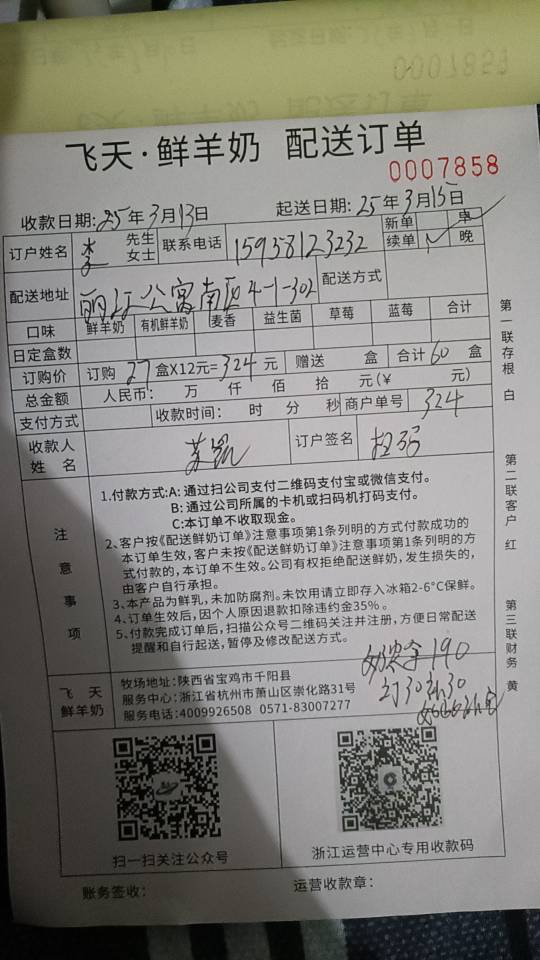 飞天·鲜羊奶 配送订单
0007858
收款日期:25年3月13日 起送日期:25年3月15日
订户姓名 李 先生 女士 联系电话 15958123232 新单 早
续单 ✓ 晚
配送地址 丽江公寓南区4-1-302 配送方式
口味 鲜羊奶 有机鲜羊奶 麦香 益生菌 草莓 蓝莓 合计
日定盒数
订购价 订购 27 盒X12元=324 元 赠送 盒 合计60 盒
总金额 人民币: 万 仟 佰 拾 元(¥ 元)
支付方式 收款时间: 时 分 秒 商户单号 324
收款人姓名 订户签名
注意事项
1.付款方式:A: 通过扫公司支付二维码支付宝或微信支付。
B: 通过公司所属的卡机或扫码机打码支付。
C:本订单不收取现金。
2、客户按《配送鲜奶订单》注意事项第1条列明的方式付款成功的
本订单生效,客户未按《配送鲜奶订单》注意事项第1条列明的方
式付款的,本订单不生效。公司有权拒绝配送鲜奶,发生损失的,
由客户自行承担。
3、本产品为鲜乳,未加防腐剂。未饮用请立即存入冰箱2-6°C保鲜。
4、订单生效后,因个人原因退款扣除违约金35%。
5、付款完成订单后,扫描公众号二维码关注并注册,方便日常配送
提醒和自行起送,暂停及修改配送方式。
190
订30送30
飞天鲜羊奶
牧场地址:陕西省宝鸡市千阳县
服务中心:浙江省杭州市萧山区崇化路31号
服务电话:4009926508 0571-83007277
扫一扫关注公众号 浙江运营中心专用收款码
账务签收: 运营收款章:
第一联存根 白
第二联客户 红
第三联财务 黄